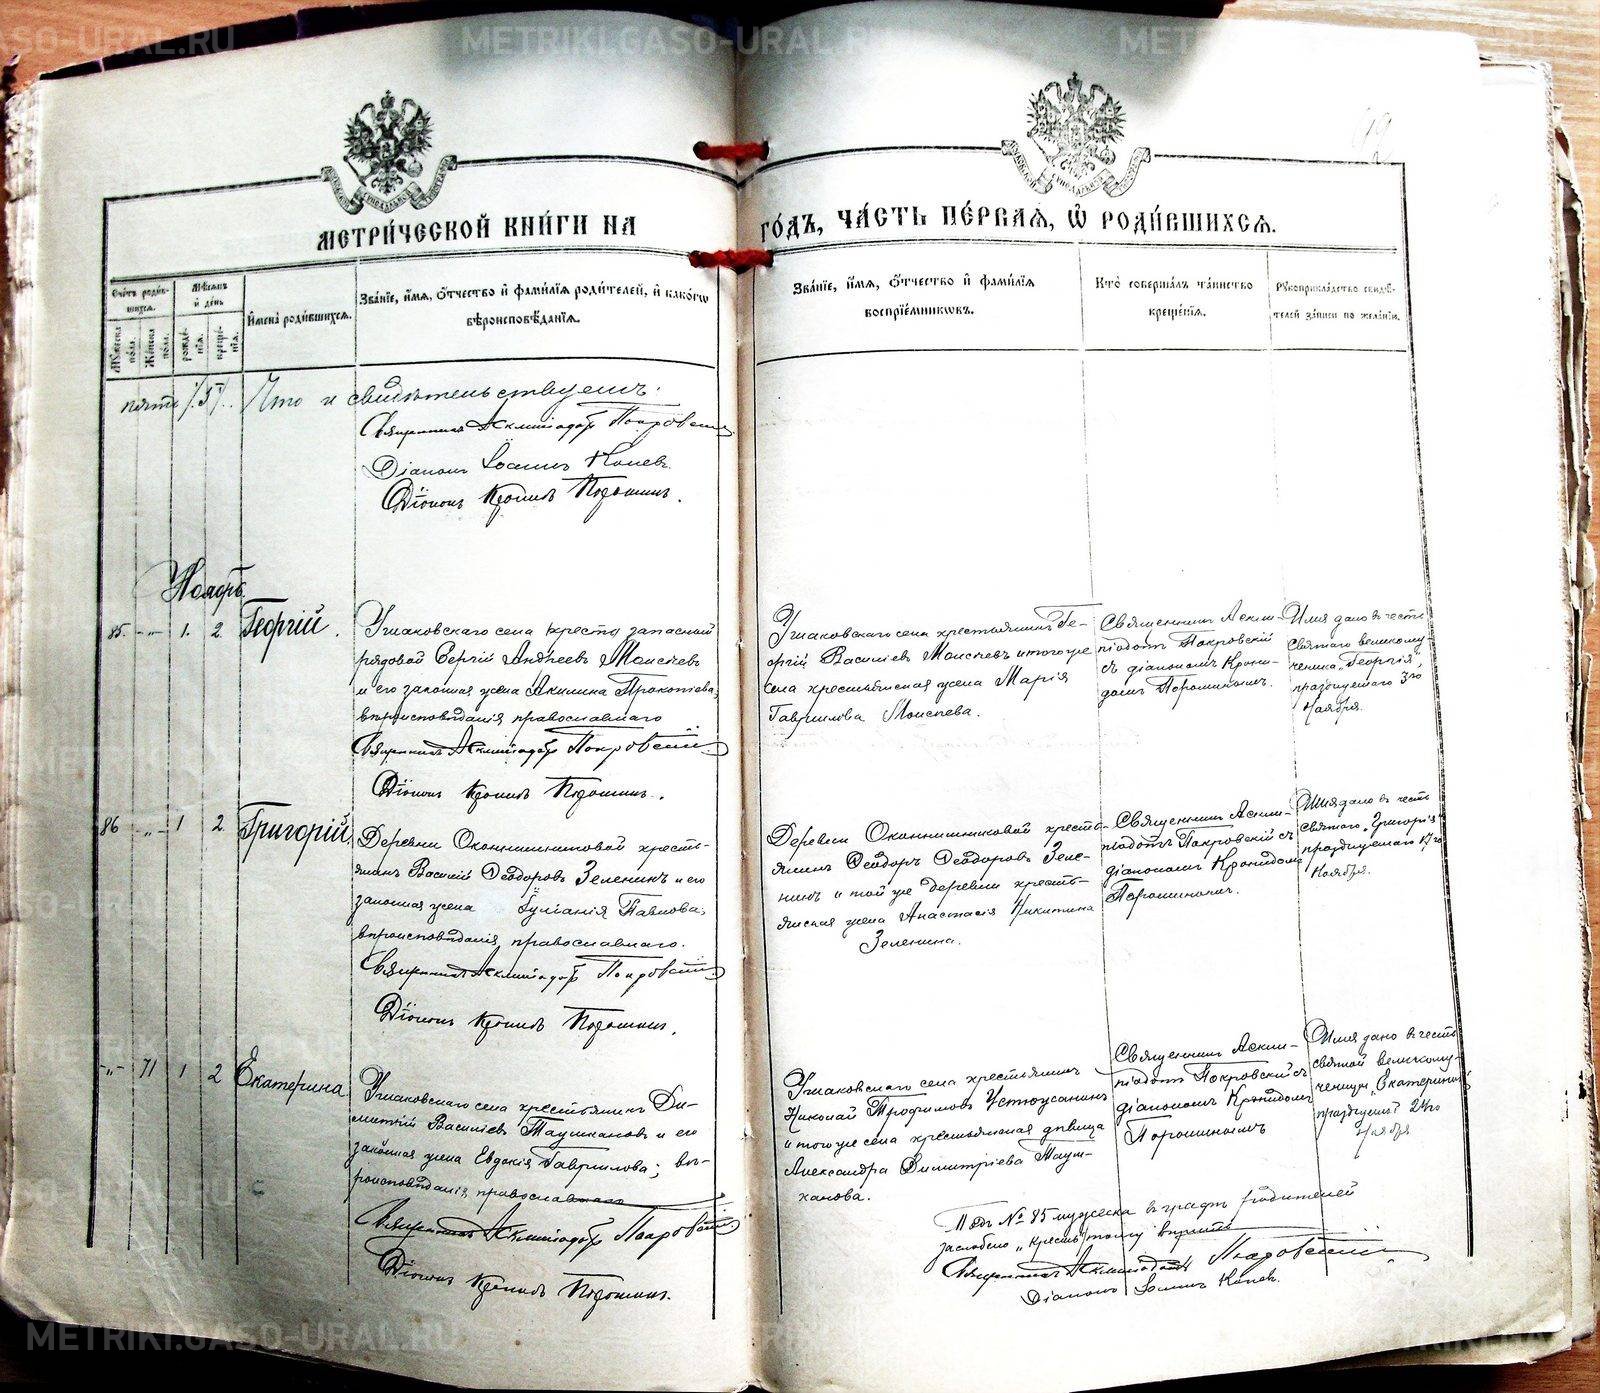 METRIKI.GASO-URAL.RU
МЕТРИ́ЧЕСКОЙ КНИ́ГИ НА
ГО́ДЪ, ЧА́СТЬ ПЕ́РВАЯ, Ѡ҆ РОДИ́ВШИХСЯ.
Сче́тъ роди́вшихся.
Му́жеска по́ла.
Же́нска по́ла.
Мѣ́сяцъ и҆ де́нь
рожде́нїя.
креще́нїя.
И҆мена̀ роди́вшихся.
Зва́нїе, и҆́мя, ѻ҆́тчество и҆ фами́лїя роди́телей, и҆ како́гѡ
вѣроисповѣ́данїя.
Зва́нїе, и҆́мя, ѻ҆́тчество и҆ фами́лїя
воспрїе́мникѡвъ.
Кто̀ соверша́лъ та́инство
креще́нїя.
Рукоприкла́дство свидѣ́-
телей за́писи по жела́нїи.
Что и свидѣтельствуемъ:
Священникъ Асклипіодотъ Покровскій
Діаконъ Іоаннъ Коневъ
Діаконъ Кронидъ Порошинъ.
Ноябрь
85. -„- 1. 2. Георгій.
Ушаковскаго села крестъ запасный
рядовой Сергій Андреевъ Моисѣевъ
и его законная жена Акилина Прокопіева,
вѣроисповѣданія православнаго
Священникъ Асклипіодотъ Покровскій
Діаконъ Кронидъ Порошинъ.
Ушаковскаго села крестьянинъ Ге-
оргій Василіевъ Моисѣевъ и того же
села крестьянская жена Марія
Гавриилова Моисѣева.
Священникъ Аскли-
піодотъ Покровскій
съ діакономъ Крони-
домъ Порошинымъ.
Имя дано въ честь
святаго великому-
ченика „Георгія“,
празднуемаго 3го
Ноября.
86 -„- 1 2 Григорій.
Деревни Оконнишниковой кресть-
янинъ Василій Ѳеодоровъ Зеленинъ и его
законная жена Іуліанія Павлова,
вѣроисповѣданія православнаго.
Священникъ Асклипіодотъ Покровскій
Діаконъ Кронидъ Порошинъ.
Деревни Оконнишниковой кресть-
янинъ Ѳеодоръ Ѳеодоровъ Зеле-
нинъ и той же деревни кресть-
янская жена Анастасія Никитина
Зеленина.
Священникъ Аскли-
піодотъ Покровскій съ
діакономъ Кронидомъ
Порошинымъ.
Имя дано въ честь
святаго „Григорія“
празднуемаго 17го
Ноября.
-„- 71 1 2 Екатерина
Ушаковскаго села крестьянинъ Ди-
митрій Василіевъ Таушкановъ и его
законная жена Евдокія Гавриилова; вѣ-
роисповѣданія православнаго
Священникъ Асклипіодотъ Покровскій.
Діаконъ Кронидъ Порошинъ.
Ушаковскаго села крестьянинъ
Николай Трофимовъ Устюжанинъ
и того же села крестьянская дѣвица
Александра Димитріева Тауш-
канова.
Священникъ Аскли-
піодотъ Покровскій съ
діакономъ Кронидомъ
Порошинымъ
Имя дано въ честь
святой великому-
ченицы „Екатерины“
празднуемой 24го
Ноября
Подъ № 85 мужеска въ графѣ родителей
Священникъ Асклипіодотъ Покровскій
Діаконъ Іоаннъ Коневъ.